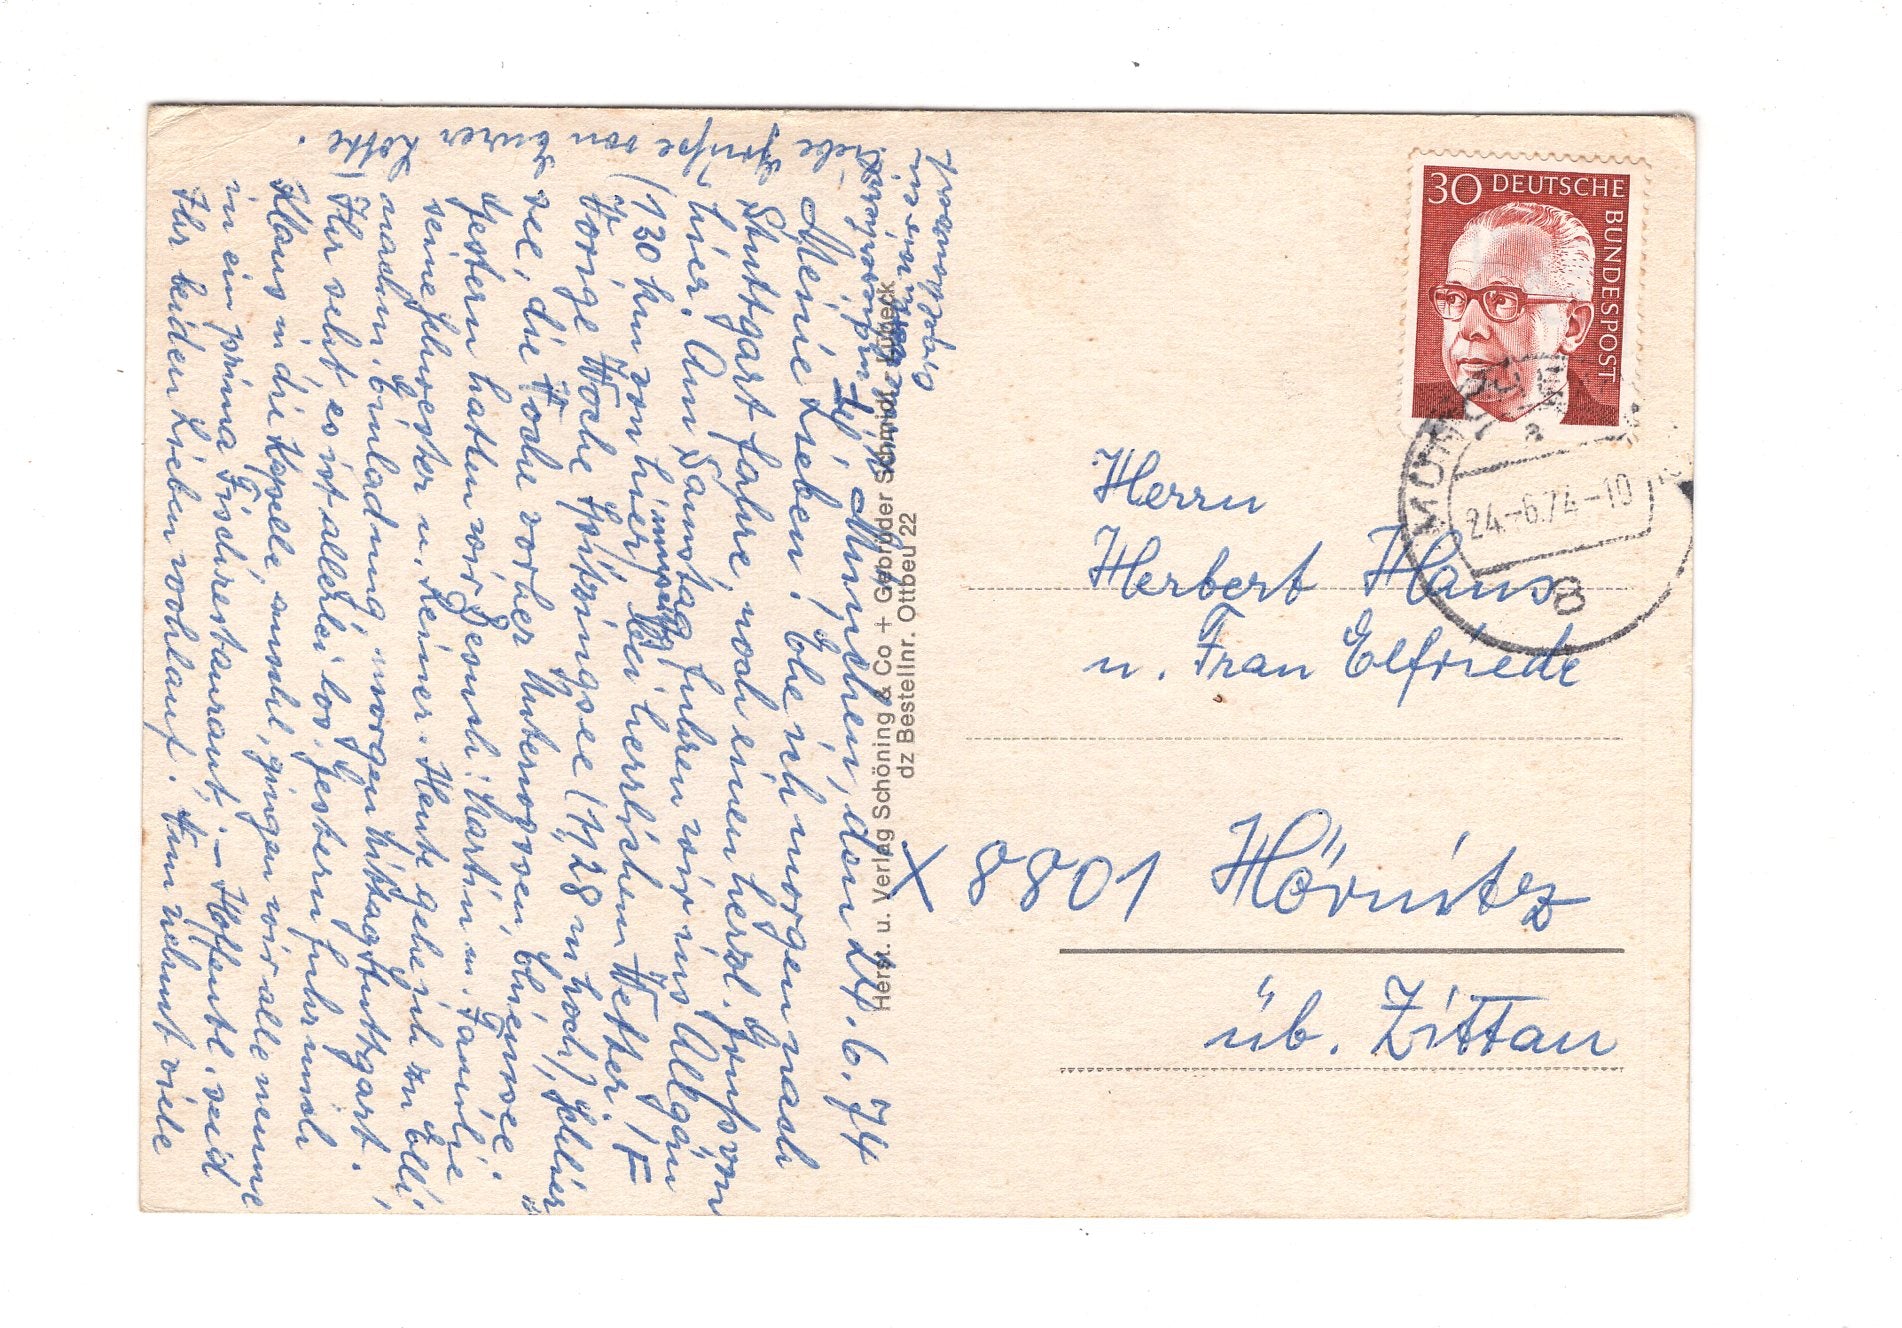 München, den 24. 6. 74
Meine Lieben! Ehe ich morgen nach
Stuttgart fahre, noch einen herzl. Gruß von
hier. Am Samstag fuhren wir ins Allgäu
(130 km von hier) bei herrlichem Wetter.
Vorige Woche Spitzingsee (1128 m hoch), Schlier-
see, die Woche vorher Untermossen, Chiemsee.
Gestern hatten wir Besuch: Martin m. Familie
seine Schwester u. Reiner. Heute gehe ich zu Elli
nachm. Einladung, morgen Mittag Stuttgart.
Ihr seht es ist allerlei los. Gestern fuhr mich
Klaus in die Kapelle, anschl. gingen wir alle neune
in ein prima Fischrestaurant. – Hoffentl. seid
Ihr beiden Lieben wohlauf. Nun nehmt viele
liebe Grüße von Eurer Lotte.
Herst. u. Verlag Schöning & Co + Gebrüder Schmidt - Lübeck
dz Bestellnr. Ottbeu 22
30 DEUTSCHE BUNDESPOST
MÜNCHEN
24.-6.74-10
8
Herrn
Herbert Haus
u. Frau Elfriede
X 8801 Hörnitz
üb. Zittau